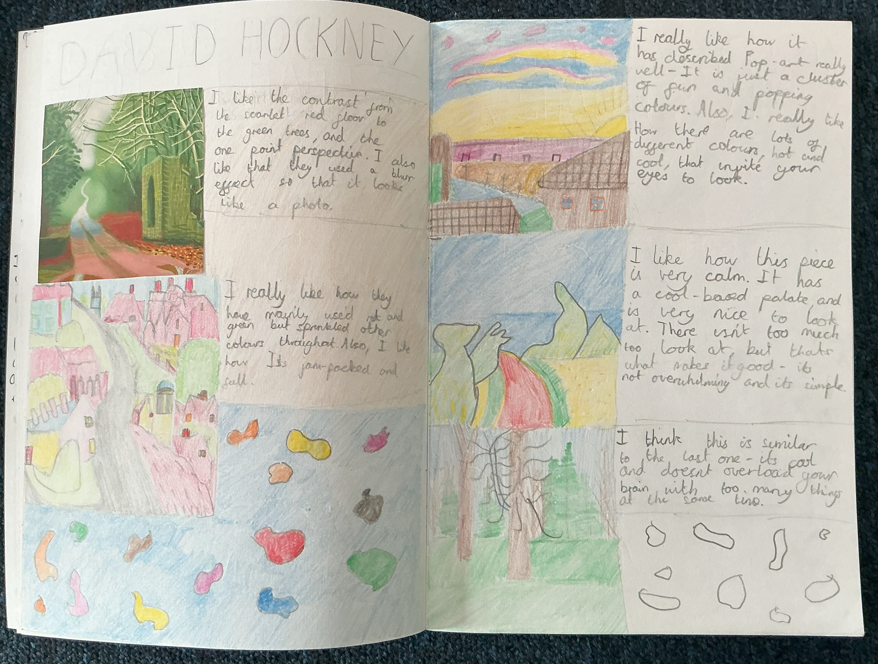 DAVID HOCKNEY
I like the contrast from
the scarlet red floor to
the green trees, and the
one point perspective. I also
like that they used a blur
effect so that it looks
like a photo.
I really like how they
have mainly used red and
green but sprinkled other
colours throughout. Also, I like
how Its jam-packed and
full.
I really like how it
has described Pop-art really
well - It is just a cluster
of fun and popping
colours. Also, I really like
How there are lots of
different colours, hot and
cool, that invite your
eyes to look.
I like how this piece
is very calm. It has
a cool-based palate, and
is very nice to look
at. There isn't too much
too look at but thats
what makes it good - its
not overwhelming and its simple.
I think this is similar
to the last one - its cool
and doesnt overload your
brain with too many things
at the same time.